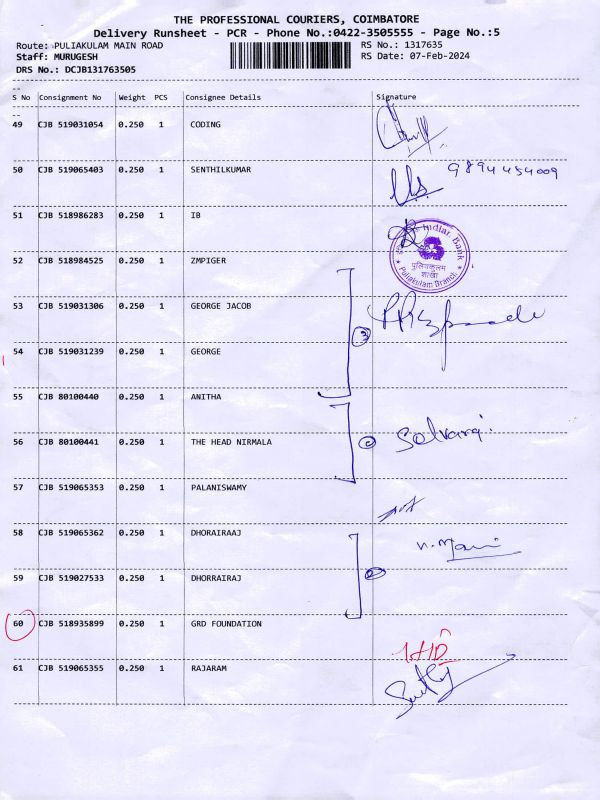 THE PROFESSIONAL COURIERS, COIMBATORE
Delivery Runsheet - PCR - Phone No.:0422-3505555 - Page No.:5
Route: PULIAKULAM MAIN ROAD RS No.: 1317635
Staff: MURUGESH RS Date: 07-Feb-2024
DRS No.: DCJB131763505
S No Consignment No Weight PCS Consignee Details Signature
49 CJB 519031054 0.250 1 CODING
50 CJB 519065403 0.250 1 SENTHILKUMAR 9894454009
51 CJB 518986283 0.250 1 IB
Indian Bank
पुलियकुलम
शाखा
Puliakulam Branch
52 CJB 518984525 0.250 1 ZMPIGER
53 CJB 519031306 0.250 1 GEORGE JACOB
3
54 CJB 519031239 0.250 1 GEORGE
55 CJB 80100440 0.250 1 ANITHA
56 CJB 80100441 0.250 1 THE HEAD NIRMALA Selvaraj.
57 CJB 519065353 0.250 1 PALANISWAMY
58 CJB 519065362 0.250 1 DHORAIRAAJ N. Mani
59 CJB 519027533 0.250 1 DHORRAIRAJ
60 CJB 518935899 0.250 1 GRD FOUNDATION
61 CJB 519065355 0.250 1 RAJARAM